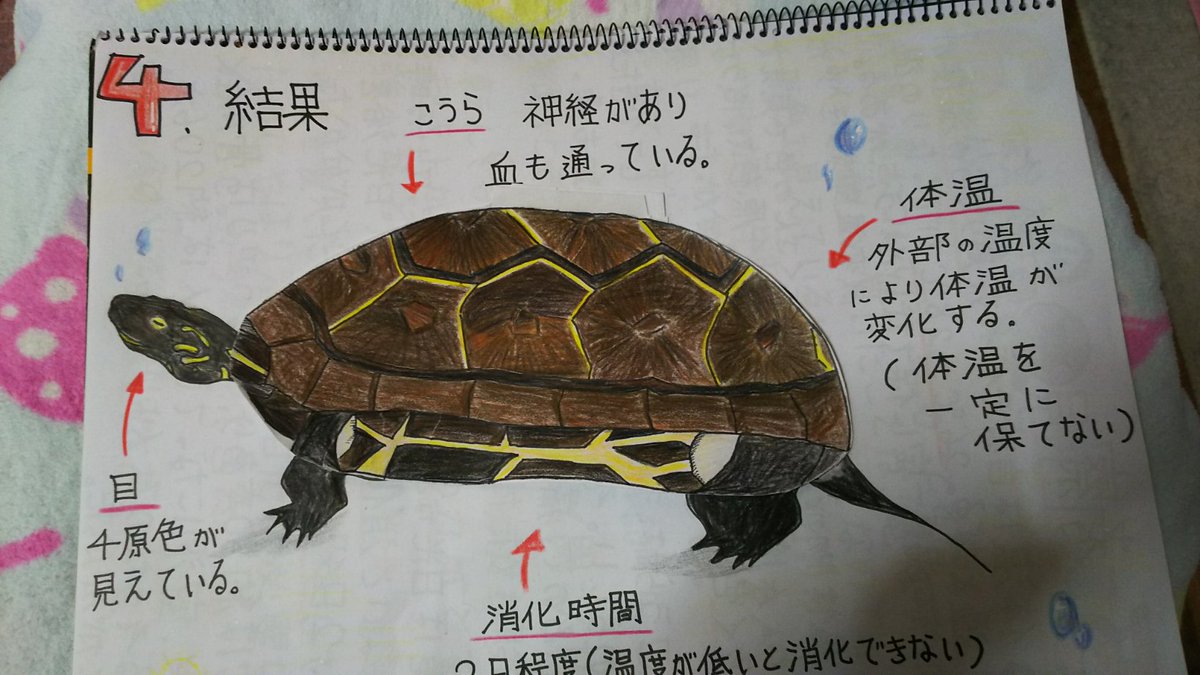 4. 結果
こうら 神経があり
血も通っている。
体温
外部の温度
により体温が
変化する。
(体温を
一定に
保てない)
目
4原色が
見えている。
消化時間
2日程度(温度が低いと消化できない)